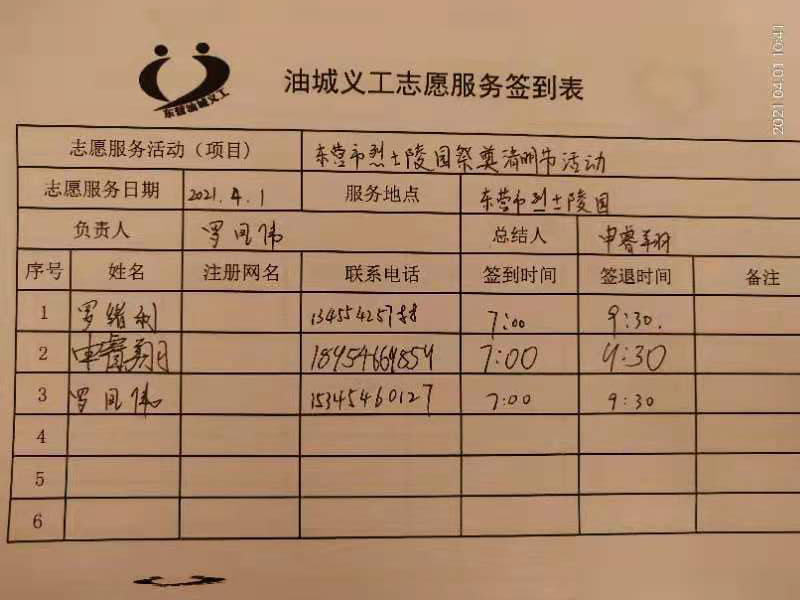 2021.04.01 10:41
东营油城义工
油城义工志愿服务签到表
志愿服务活动（项目） 东营市烈士陵园祭奠清明节活动
志愿服务日期 2021.4.1 服务地点 东营市烈士陵园
负责人 罗同伟 总结人 申睿翔
序号 姓名 注册网名 联系电话 签到时间 签退时间 备注
1 罗绪利 13455425788 7:00 9:30.
2 申睿翔 18954669854 7:00 9:30
3 罗同伟 15345460127 7:00 9:30
4
5
6